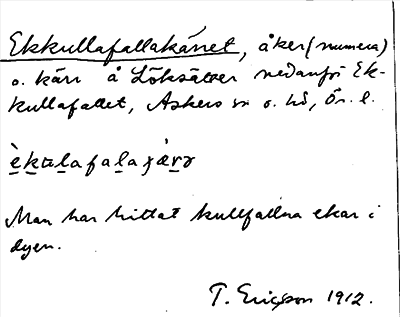 Ekkullafallakärret, åker (numera)
o. kärr å Löksätter nedanför Ek-
kullafallet, Askers sn o. hd, Ör. l.
Man har hittat kullfallna ekar i
dyen.
T. Ericsson 1912.